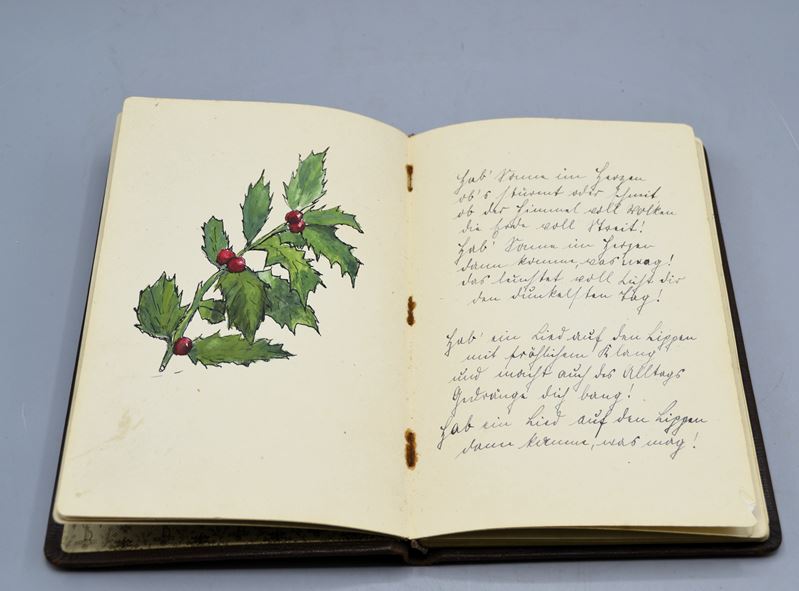 Hab' Sonne im Herzen
ob's stürmt oder schneit
ob der Himmel voll Wolken
die Erde voll Streit!
Hab' Sonne im Herzen
dann komme, was mag!
das leuchtet voll Licht dir
den dunkelsten Tag!
Hab' ein Lied auf den Lippen
mit fröhlichem Klang
und macht auch des Alltags
Gedränge dich bang!
Hab ein Lied auf den Lippen
dann komme, was mag!